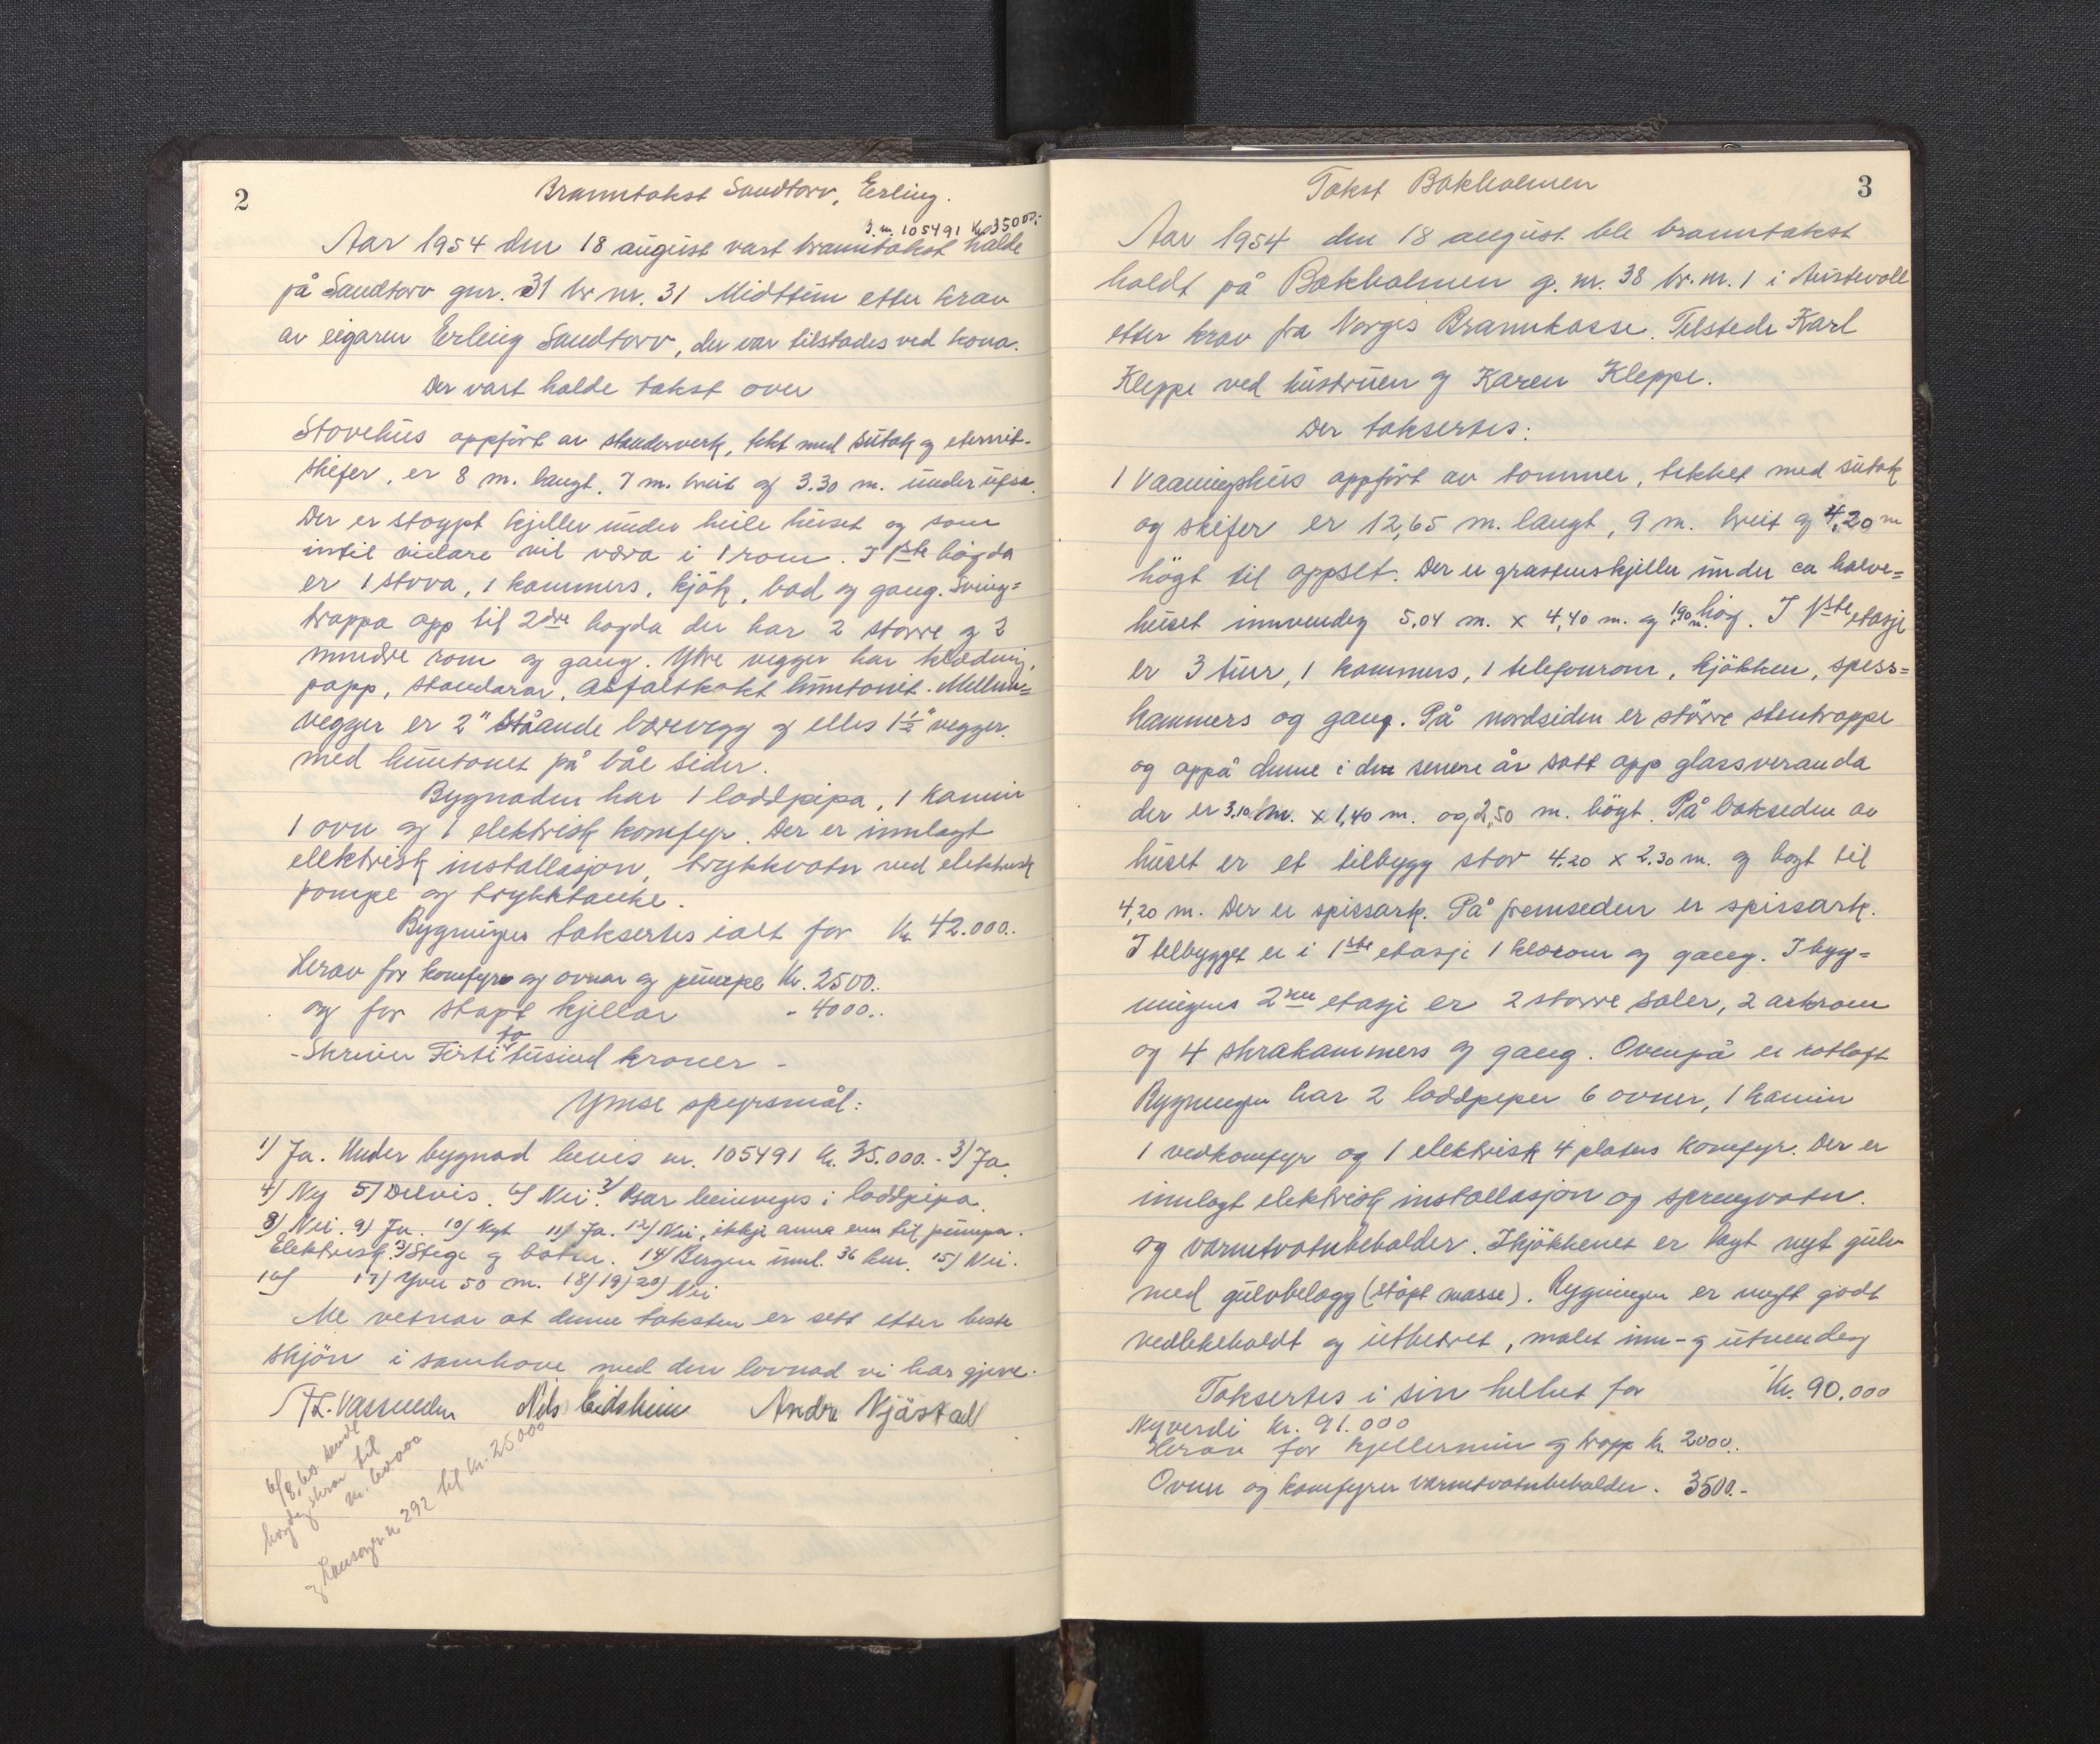 2
Branntakst Sandtorv, Erling.
J. nr. 105491 Kr. 35000.-
Aar 1954 den 18 august vart branntakst halde
på Sandtorv gnr. 31 br nr. 31 Midttun etter krav
av eigaren Erling Sandtorv, der var tilstades ved kona.
Der vart halde takst over
Stovehus oppført av stenderverk, tekt med sutak og eternit-
skifer, er 8 m. langt, 7 m. breit og 3.30 m. under ufsa.
Der er støypt kjeller under heile huset og som
intil vidare vil væra i 1 rom. I 1ste høgda
er 1 stova, 1 kammers, kjøk, bad og gang. Sving=
trappa opp til 2dre høgda der har 2 større og 2
mindre rom og gang. Ytre vegger har klædning,
papp, standarar, asfaltkokt huntonit. Mellum=
vegger er 2" ståande berevegg og elles 1½" vegger.
med huntonet på båe sider.
Bygnaden har 1 loddpipa, 1 kamin
1 ovn og 1 elektrisk komfyr. Der er innlagt
elektrisk installasjon, trykkvatn ved elektrisk
pompe og trykktanke.
Bygningen taksertes ialt for Kr 42.000..
Herav for komfyr og ovnar og pumpe Kr. 2500..
og for støpt kjellar - 4000..
- Skriver Førtito tusund kroner -
Ymse spyrsmål:
1) Ja. Under bygnad bevis nr. 105491 kr. 35.000.- 3) Ja.
4) Ny 5) Delvis. 6) Nei. 7) Bar beinveges i loddpipa.
8) Nei. 9) Ja. 10) Nyt 11) Ja. 12) Nei, ikkje anna enn til pumpa.
Elektrisk. 13) Stege og bøtter. 14) Bergen innl. 36 km. 15) Nei.
16) 17) Yver 50 m. 18) 19) 20) Nei
Me vetnar at denne taksten er sett etter beste
skjøn i samhøve med den lovnad vi har gjeve.
H. Vassenden Nils Eidsheim Andr Njåstad
6/8.60 sendt
krav til
kr. 60000
og nr. 292 til kr. 25000
3
Takst Bakholmen
Aar 1954 den 18 august ble branntakst
holdt på Bakholmen g. nr. 38 br. nr. 1 i Austevoll
etter krav fra Norges Brannkasse. Tilstede Karl
Kleppe ved hustruen og Karen Kleppe.
Der taksertes:
1 Vaaningshus oppført av tømmer, tekket med sutak
og skifer er 12,65 m. langt, 9 m. breit og 4,20 m
høgt til oppsett. Der er gråstenskjeller under ca halve=
huset innvendig 5.04 m. x 4,40 m. og 1,90 m. høg. I 1ste etasje
er 3 stuer, 1 kammers, 1 telefonrom, kjøkken, speis=
kammers og gang. På nordsiden er større stentrappe
og oppå denne i den senere år satt opp glassveranda
der er 3,10 m. x 1,40 m. og 2,50 m. høgt. På baksiden av
huset er et tilbygg stor 4.20 x 2.30 m. og høgt til
4,20 m. Der er spissark. På fremsiden er spissark.
I tilbygget er i 1ste etasje 1 klærom og gang. I byg=
ningens 2nen etasje er 2 større saler, 2 arkrom
og 4 skråkammers og gang. Ovenpå er rotloft
Bygningen har 2 loddpiper 6 ovner, 1 kamin
1 vedkomfyr og 1 elektrisk 4 platers komfyr. Der er
innlagt elektrisk installasjon og springvatn.
og varmtvatnbeholder. I kjøkkenet er lagt nyt gulv
med gulvbelegg (støpt masse). Bygningen er meget godt
vedlikeholdt og utbetret, malet inn- og utvendig
Taksertes i sin helhet for Kr. 90.000
Nyverdi kr. 91.000
Herav for kjellermur og trapp kr. 2000..
Ovner og komfyrer varmtvatnbeholder. 3500.-